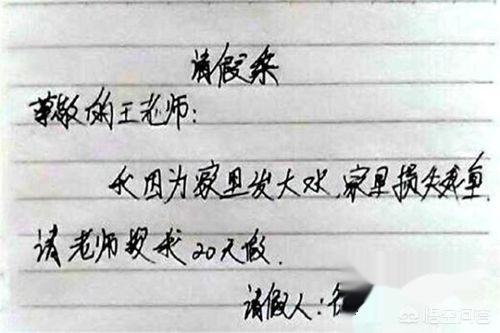 请假条
尊敬的王老师：
我因为家里发大水，家里损失惨重，
请老师批求20天假．
请假人：
悟空问答